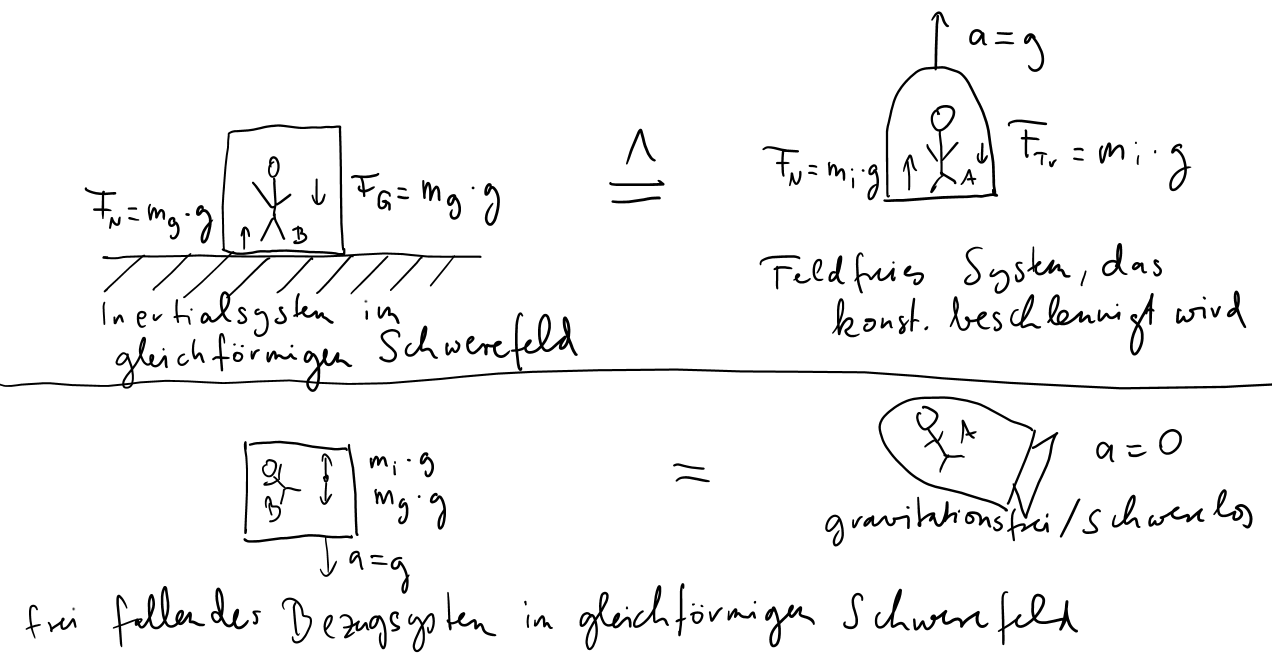 a = g
F_N = m_g · g
B
F_G = m_g · g
≙
F_N = m_i · g
A
F_Tr = m_i · g
Inertialsystem im
gleichförmigen Schwerefeld
Feldfreies System, das
konst. beschleunigt wird
B
m_i · g
m_g · g
a = g
=
A
a = 0
gravitationsfrei / schwerelos
frei fallendes Bezugsystem im gleichförmigen Schwerefeld